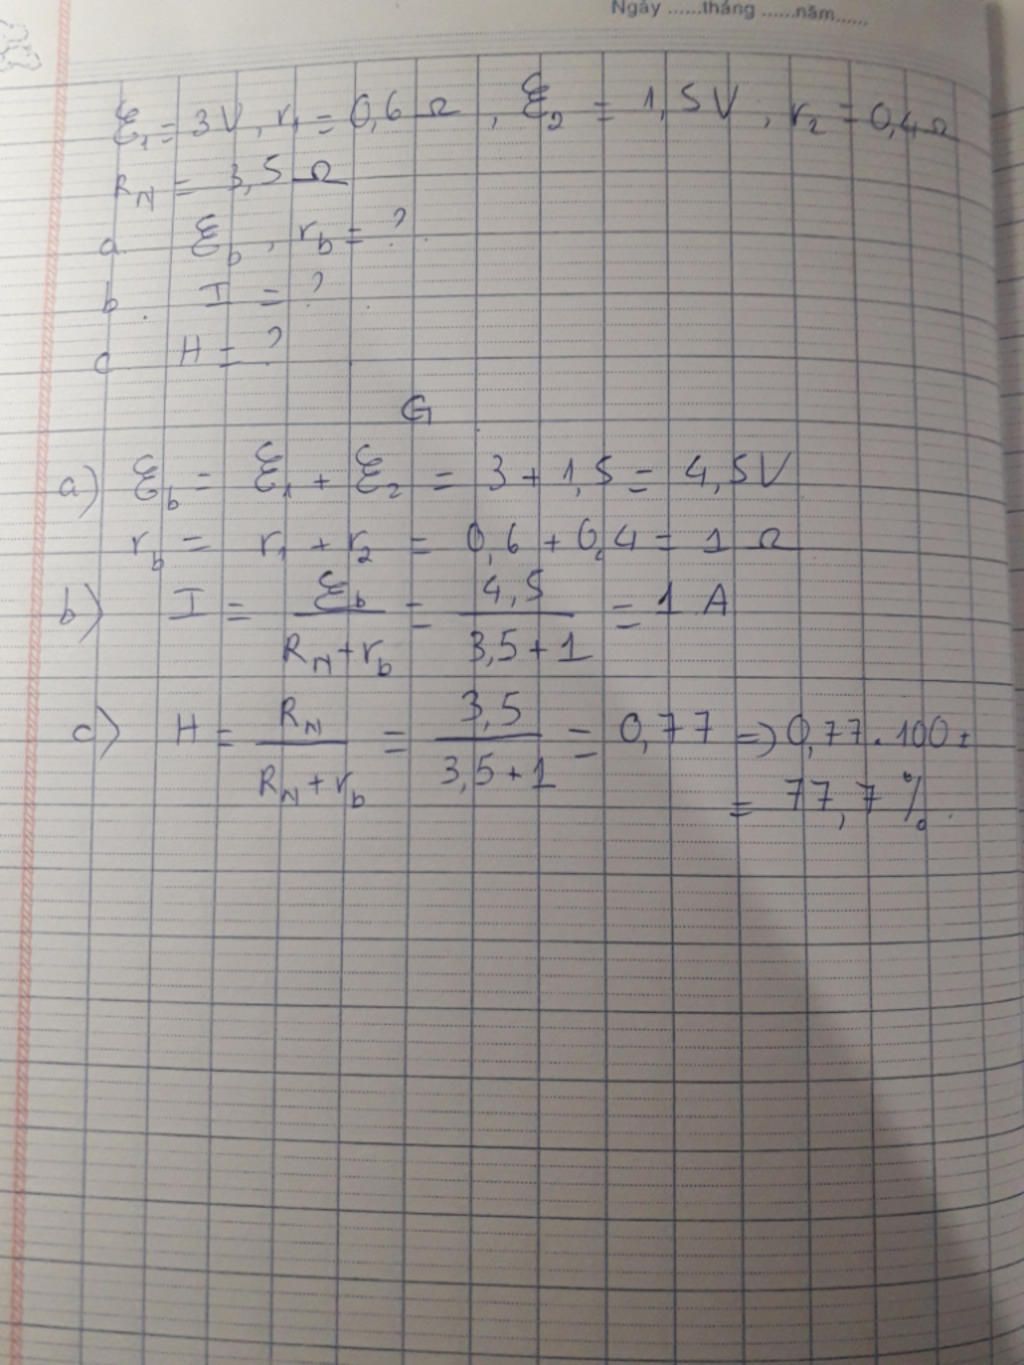 Ngày ......tháng ......năm......
ξ₁ = 3V, r₁ = 0,6 Ω, ξ₂ = 1,5V, r₂ = 0,4Ω
R_N = 3,5 Ω
a ξ_b, r_b = ?
b I = ?
c H = ?
G
a) ξ_b = ξ₁ + ξ₂ = 3 + 1,5 = 4,5V
r_b = r₁ + r₂ = 0,6 + 0,4 = 1 Ω
b) I = ξ_b / (R_N + r_b) = 4,5 / (3,5 + 1) = 1 A
c) H = R_N / (R_N + r_b) = 3,5 / (3,5 + 1) = 0,77 => 0,77.100 =
= 77,7 %